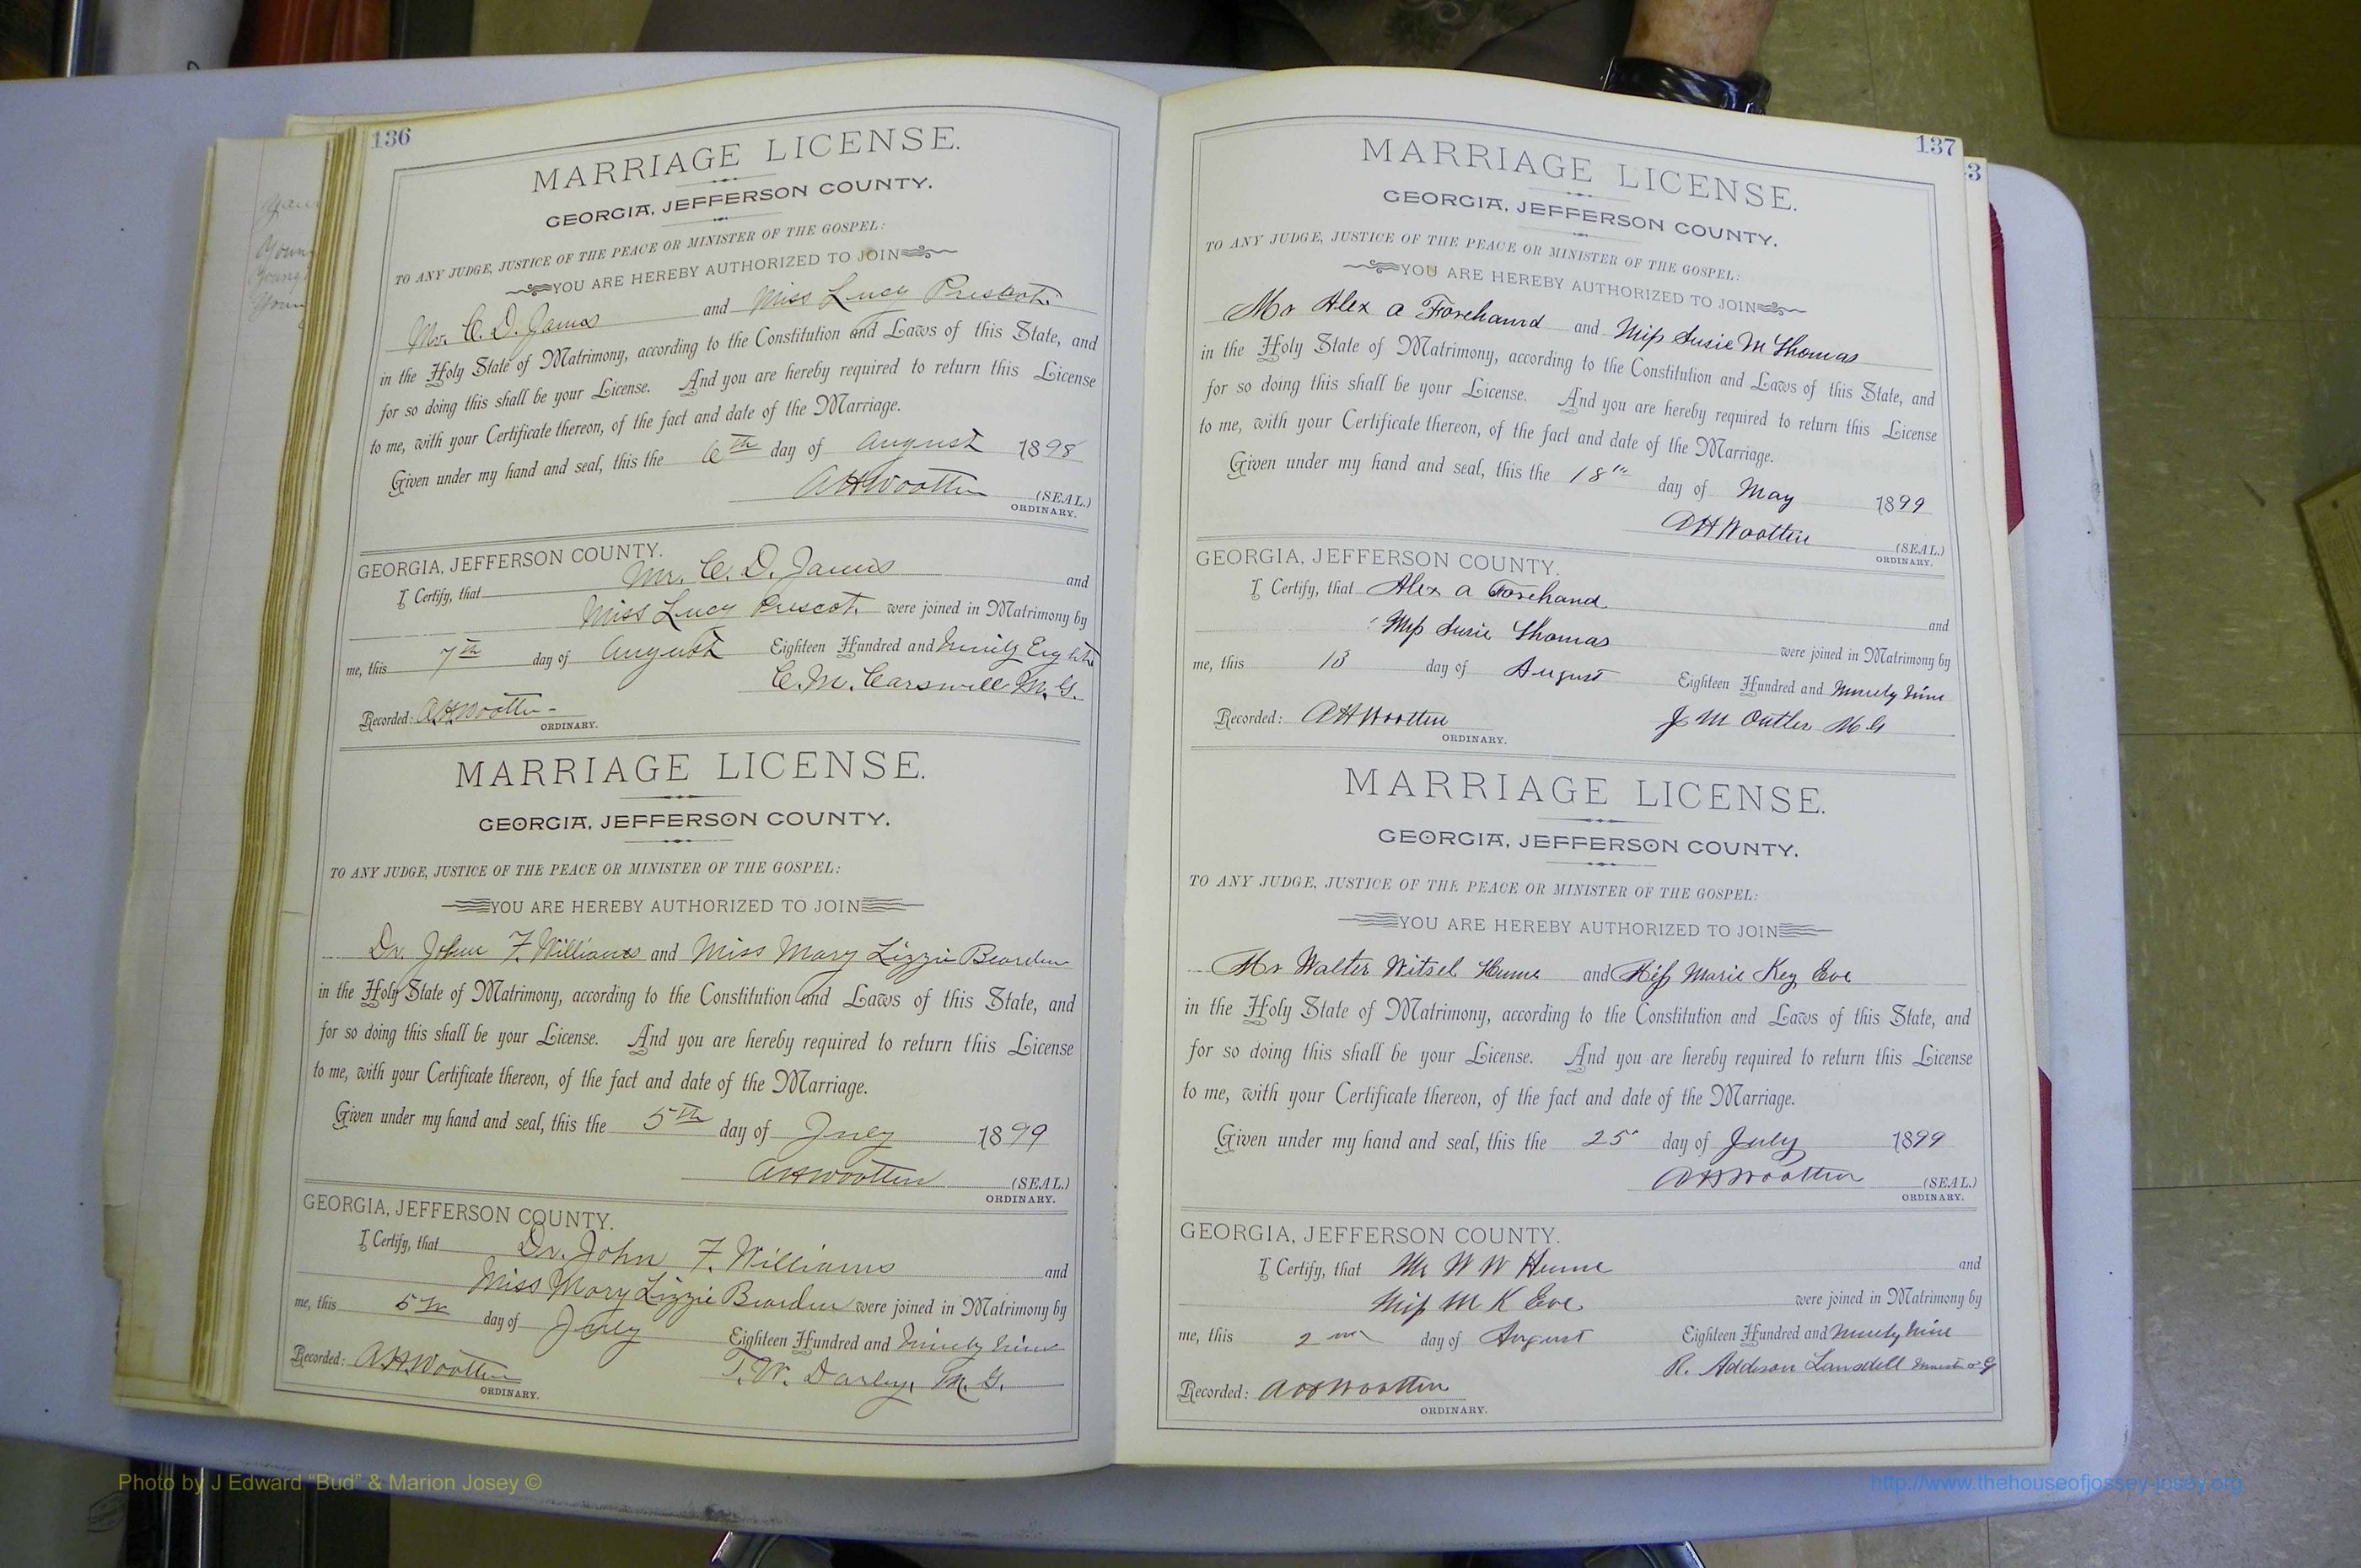 136
MARRIAGE LICENSE.
GEORGIA, JEFFERSON COUNTY.
TO ANY JUDGE, JUSTICE OF THE PEACE OR MINISTER OF THE GOSPEL:
YOU ARE HEREBY AUTHORIZED TO JOIN
Mr. C. D. James and Miss Lucy Prescot
in the Holy State of Matrimony, according to the Constitution and Laws of this State, and
for so doing this shall be your License. And you are hereby required to return this License
to me, with your Certificate thereon, of the fact and date of the Marriage.
Given under my hand and seal, this the 6th day of August 1898
AHWootten (SEAL.)
ORDINARY.
GEORGIA, JEFFERSON COUNTY.
I Certify, that Mr. C. D. James and
Miss Lucy Prescot were joined in Matrimony by
me, this 7th day of August Eighteen Hundred and Ninety Eight
C. M. Carswell M. G.
Recorded: A.H.Wootten
ORDINARY.
MARRIAGE LICENSE.
GEORGIA, JEFFERSON COUNTY.
TO ANY JUDGE, JUSTICE OF THE PEACE OR MINISTER OF THE GOSPEL:
YOU ARE HEREBY AUTHORIZED TO JOIN
Dr. John F. Williams and Miss Mary Lizzie Bearden
in the Holy State of Matrimony, according to the Constitution and Laws of this State, and
for so doing this shall be your License. And you are hereby required to return this License
to me, with your Certificate thereon, of the fact and date of the Marriage.
Given under my hand and seal, this the 5th day of July 1899
AHWootten (SEAL.)
ORDINARY.
GEORGIA, JEFFERSON COUNTY.
I Certify, that Dr. John F. Williams and
Miss Mary Lizzie Bearden were joined in Matrimony by
me, this 5th day of July Eighteen Hundred and ninety nine
T. W. Darley, M. G.
Recorded: A.H.Wootten
ORDINARY.
137
3
MARRIAGE LICENSE.
GEORGIA, JEFFERSON COUNTY.
TO ANY JUDGE, JUSTICE OF THE PEACE OR MINISTER OF THE GOSPEL:
YOU ARE HEREBY AUTHORIZED TO JOIN
Mr Alex a Forehand and Miss Susie M Thomas
in the Holy State of Matrimony, according to the Constitution and Laws of this State, and
for so doing this shall be your License. And you are hereby required to return this License
to me, with your Certificate thereon, of the fact and date of the Marriage.
Given under my hand and seal, this the 18th day of May 1899
AHWootten (SEAL.)
ORDINARY.
GEORGIA, JEFFERSON COUNTY.
I Certify, that Alex a Forehand
and
Miss Susie Thomas were joined in Matrimony by
me, this 13 day of August Eighteen Hundred and Ninety nine
J M Outler M G
Recorded: AHWootten
ORDINARY.
MARRIAGE LICENSE.
GEORGIA, JEFFERSON COUNTY.
TO ANY JUDGE, JUSTICE OF THE PEACE OR MINISTER OF THE GOSPEL:
YOU ARE HEREBY AUTHORIZED TO JOIN
Mr Walter Witsel Hume and Miss Marie Key Eve
in the Holy State of Matrimony, according to the Constitution and Laws of this State, and
for so doing this shall be your License. And you are hereby required to return this License
to me, with your Certificate thereon, of the fact and date of the Marriage.
Given under my hand and seal, this the 25" day of July 1899
AHWootten (SEAL.)
ORDINARY.
GEORGIA, JEFFERSON COUNTY.
I Certify, that Mr W W Hume and
Miss M K Eve were joined in Matrimony by
me, this 2nd day of August Eighteen Hundred and Ninety Nine
R. Addison Lansdell
Recorded: AHWootten
ORDINARY.
Photo by J Edward “Bud” & Marion Josey ©
http://www.thehouseofjossey-josey.org